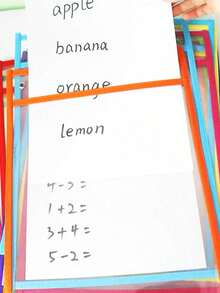 apple
banana
orange
lemon
1+2=
3+4=
5-2=